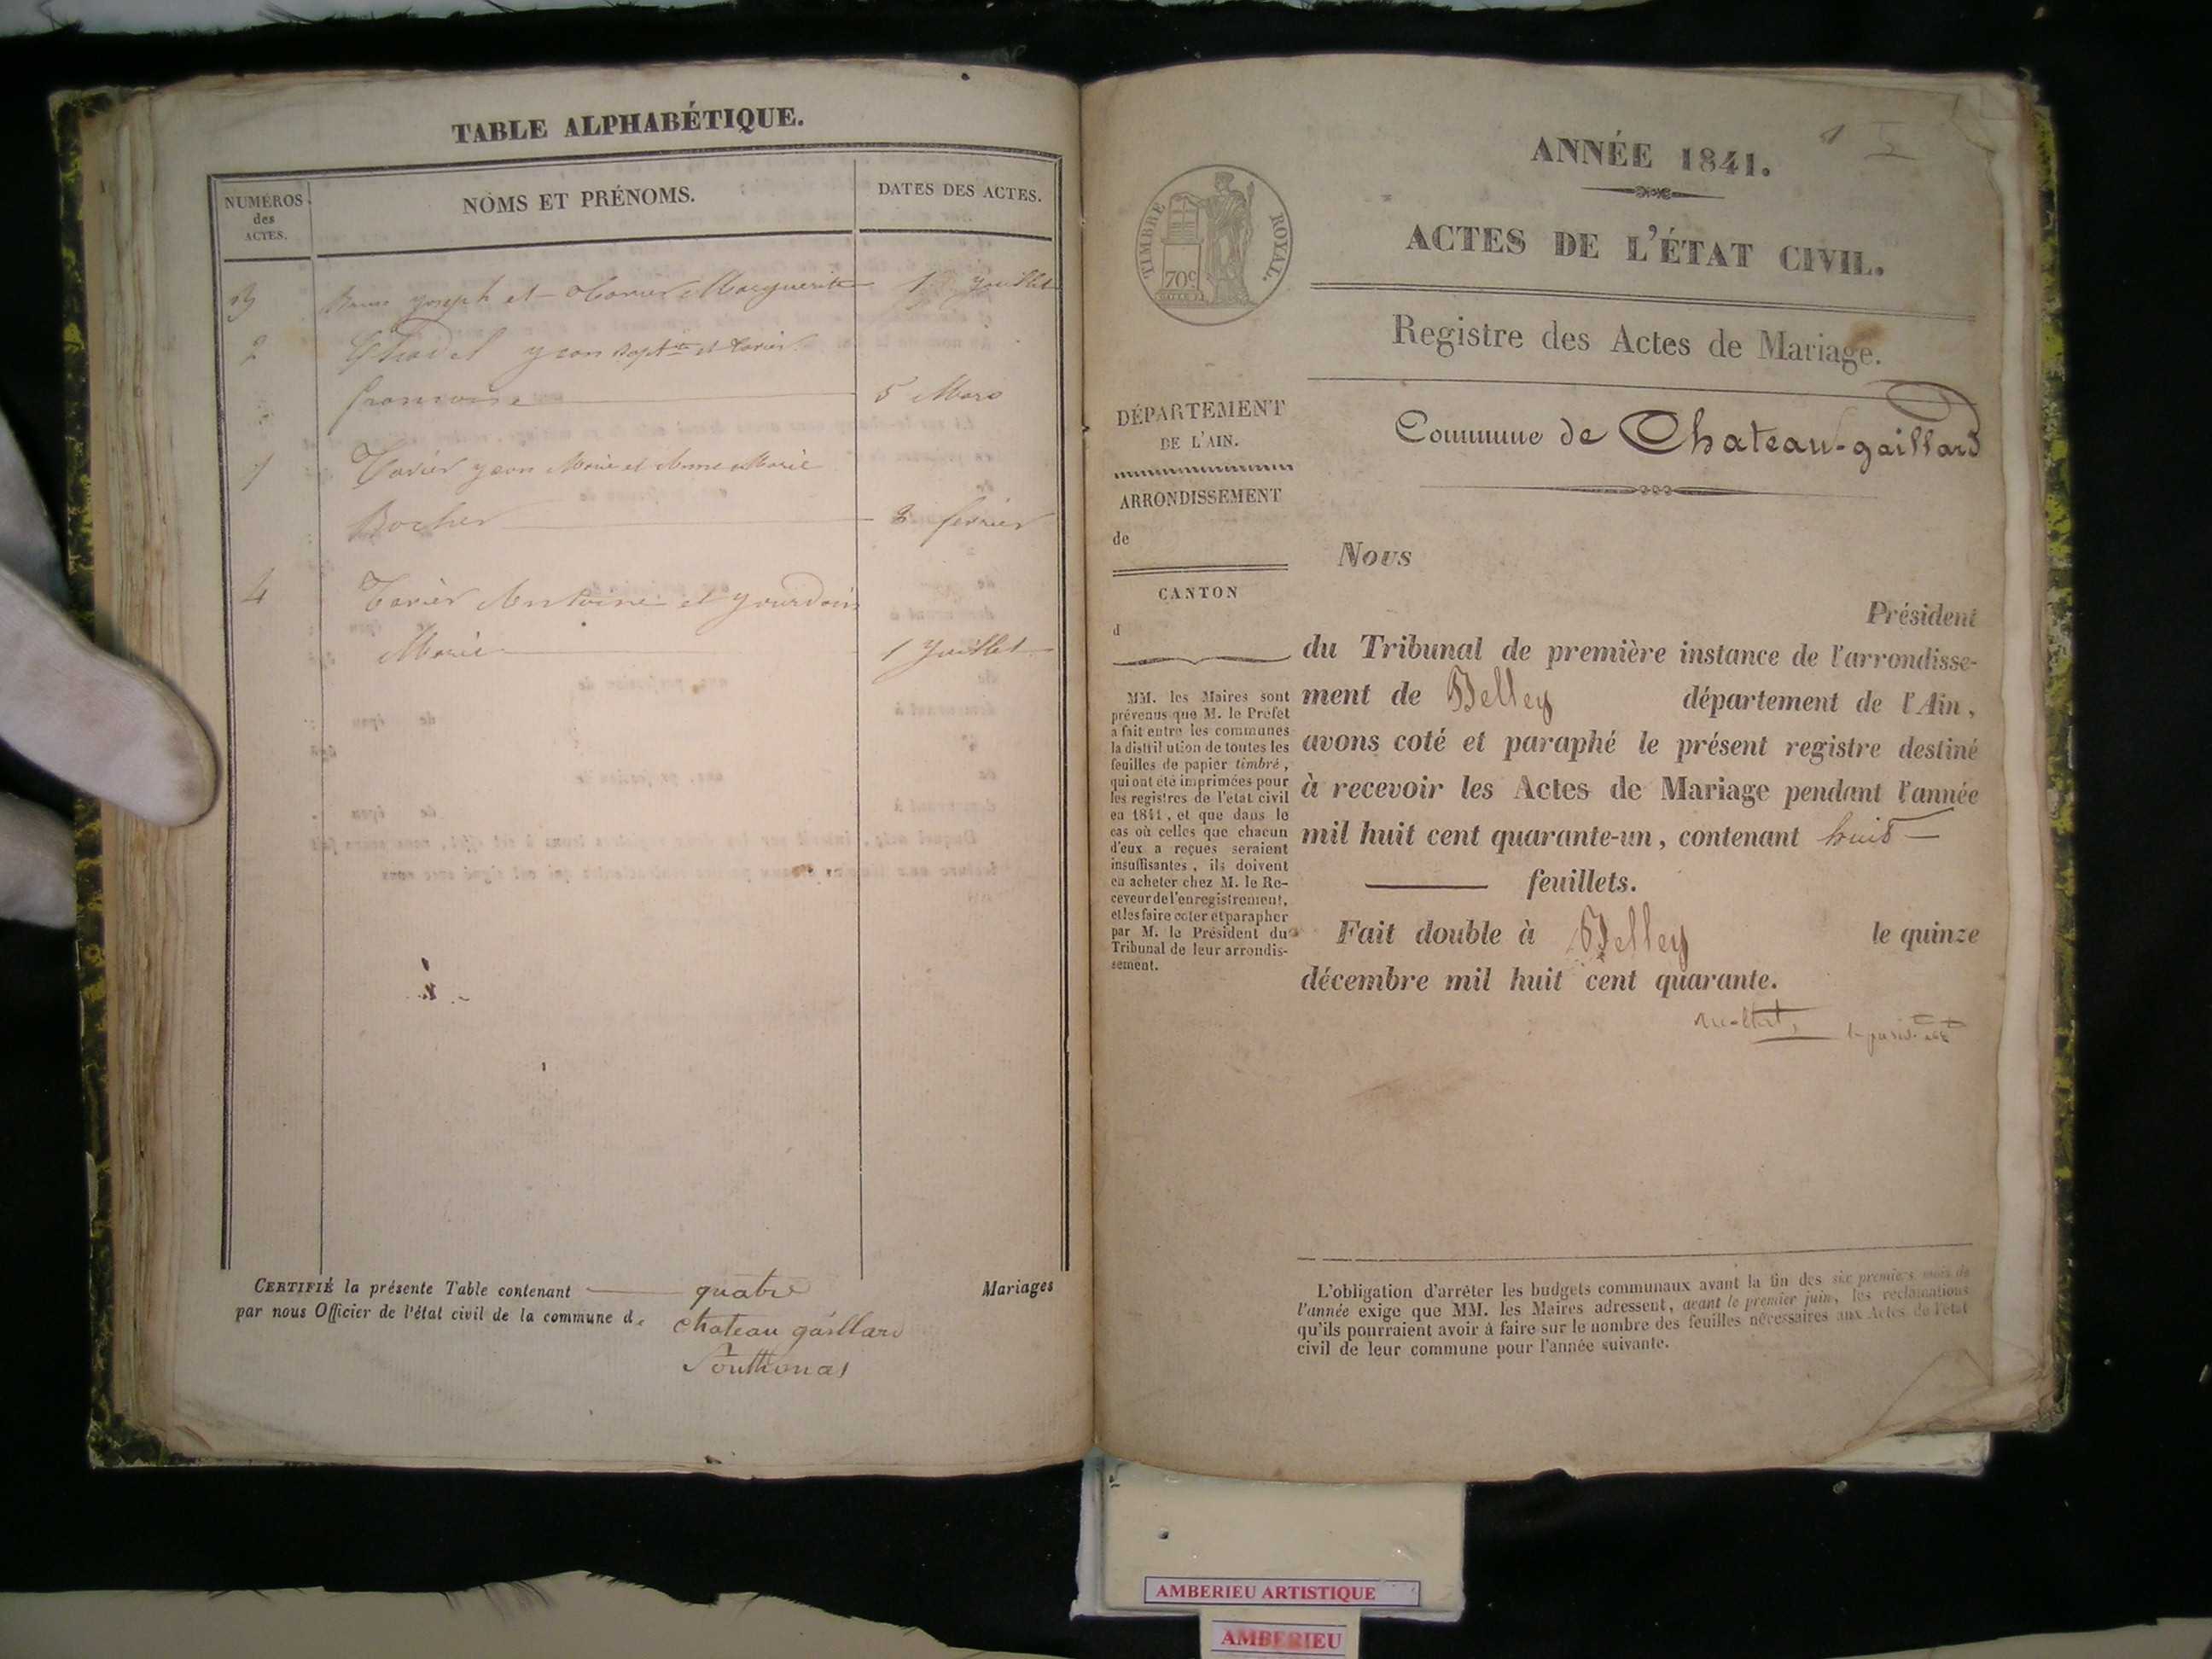 TABLE ALPHABÉTIQUE.
NUMÉROS
des
ACTES.
NOMS ET PRÉNOMS.
DATES DES ACTES.
3 joseph et Marguerite 1 juillet
2 jean Bapt.te et Tavier
francoise 5 Mars
1 Tavier jean Marie et Anne Marie
Bocher fevrier
4 Tavier Antoine et jourdain
Marie 1 juillet
CERTIFIÉ la présente Table contenant quatre Mariages
par nous Officier de l'état civil de la commune de chateau gaillard
Southonas
ANNÉE 1841.
ACTES DE L'ÉTAT CIVIL.
Registre des Actes de Mariage.
TIMBRE ROYAL.
70c
DÉPARTEMENT
DE L'AIN.
ARRONDISSEMENT
de
CANTON
d
MM. les Maires sont
prévenus que M. le Prefet
a fait entre les communes
la distribution de toutes les
feuilles de papier timbré,
qui ont été imprimées pour
les registres de l'état civil
en 1841, et que dans le
cas où celles que chacun
d'eux a reçues seraient
insuffisantes, ils doivent
en acheter chez M. le Re-
ceveur de l'enregistrement,
et les faire coter et parapher
par M. le Président du
Tribunal de leur arrondis-
sement.
Commune de Chateau-gaillard
Nous
Président
du Tribunal de première instance de l'arrondisse-
ment de Belley département de l'Ain,
avons coté et paraphé le présent registre destiné
à recevoir les Actes de Mariage pendant l'année
mil huit cent quarante-un, contenant huit
feuillets.
Fait double à Belley le quinze
décembre mil huit cent quarante.
L'obligation d'arrêter les budgets communaux avant la fin des six premiers mois de
l'année exige que MM. les Maires adressent, avant le premier juin, les réclamations
qu'ils pourraient avoir à faire sur le nombre des feuilles nécessaires aux Actes de l'état
civil de leur commune pour l'année suivante.
AMBERIEU ARTISTIQUE
AMBERIEU